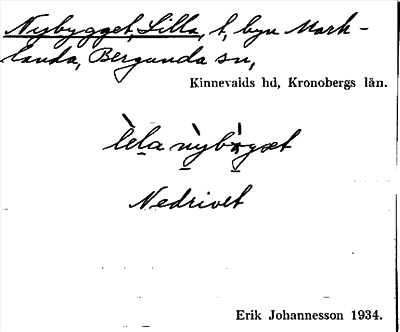 Nybygget, Lilla, t, byn Mark-
landa, Bergunda sn,
Kinnevalds hd, Kronobergs län.
Nedrivet
Erik Johannesson 1934.